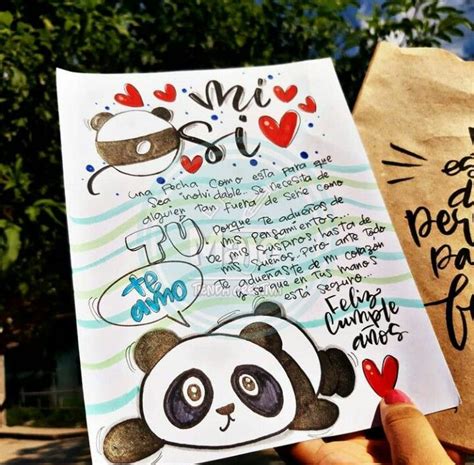 mi
osi
una Fecha como esta para que
sea inolvidable. Se necesita de
alguien tan fuera de serie como
TÚ
porque te adueñas de
mis pensamientos...
de mis suspiros hasta de
mis sueños. pero ante todo
te adueñaste de mi corazón
y se que en tus manos
está seguro...
te
amo
Feliz
Cumple
años